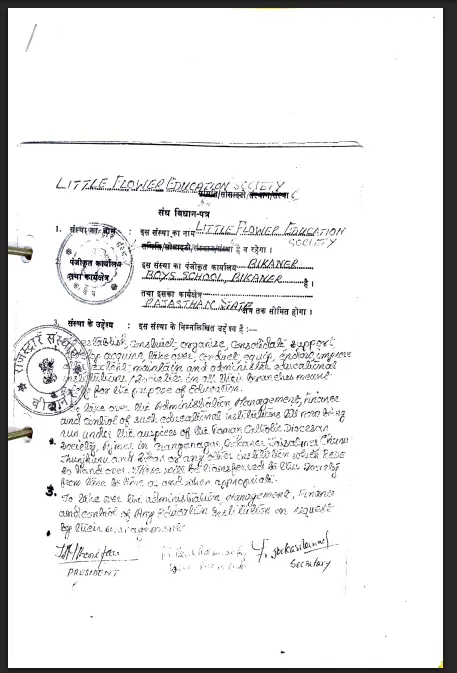 LITTLE FLOWER EDUCATION SOCIETY
समिति/सोसाइटी/संस्थान/संस्था
संघ विधान-पत्र
1. संस्था का नाम : इस संस्था का नाम LITTLE FLOWER EDUCATION
SOCIETY
समिति/सोसाइटी/संस्थान/संस्था है व रहेगा।
पंजीकृत कार्यालय : इस संस्था का पंजीकृत कार्यालय BIKANER
तथा कार्यक्षेत्र BOYS SCHOOL, BIKANER है।
तथा इसका कार्यक्षेत्र
RAJASTHAN STATE क्षेत्र तक सीमित होगा।
संस्था के उद्देश्य : इस संस्था के निम्नलिखित उद्देश्य हैं :—
establish, construct, organise, consolidate, support,
acquire, take over, conduct, equip, endow, improve
extend, maintain and administer educational
institutions in all their branches meant
for the purpose of Education.
To take over the Administration Management, Finance
and control of such educational institutions as now being
run under the auspices of the Roman Catholic Diocesan
Society, Ajmer in Ganganagar, Bikaner, Jaisalmer, Churu
Jhunjhunu and Sikar or any other institution which
to hand over. These will be transferred to this Society
from time to time as and when appropriate.
3. To take over the administration, Management, Finance
and control of Any Education Institution on request
by their management
PRESIDENT
Secretary
राजस्थान